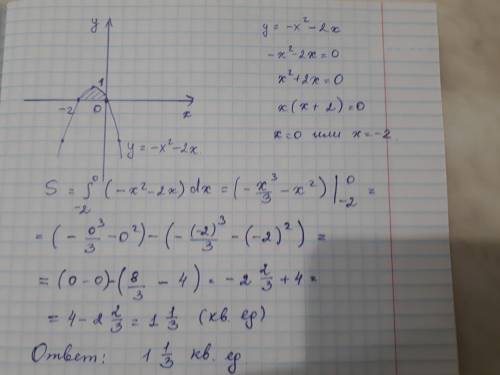 y
1
-2
0
x
y = -x² - 2x
y = -x² - 2x
-x² - 2x = 0
x² + 2x = 0
x (x + 2) = 0
x = 0 или x = -2
S = ∫₋₂⁰ (-x² - 2x) dx = (-x³/3 - x²) |₋₂⁰ =
= (-0³/3 - 0²) - (-(-2)³/3 - (-2)²) =
= (0 - 0) - (8/3 - 4) = -2 2/3 + 4 =
= 4 - 2 2/3 = 1 1/3 (кв. ед)
Ответ: 1 1/3 кв. ед